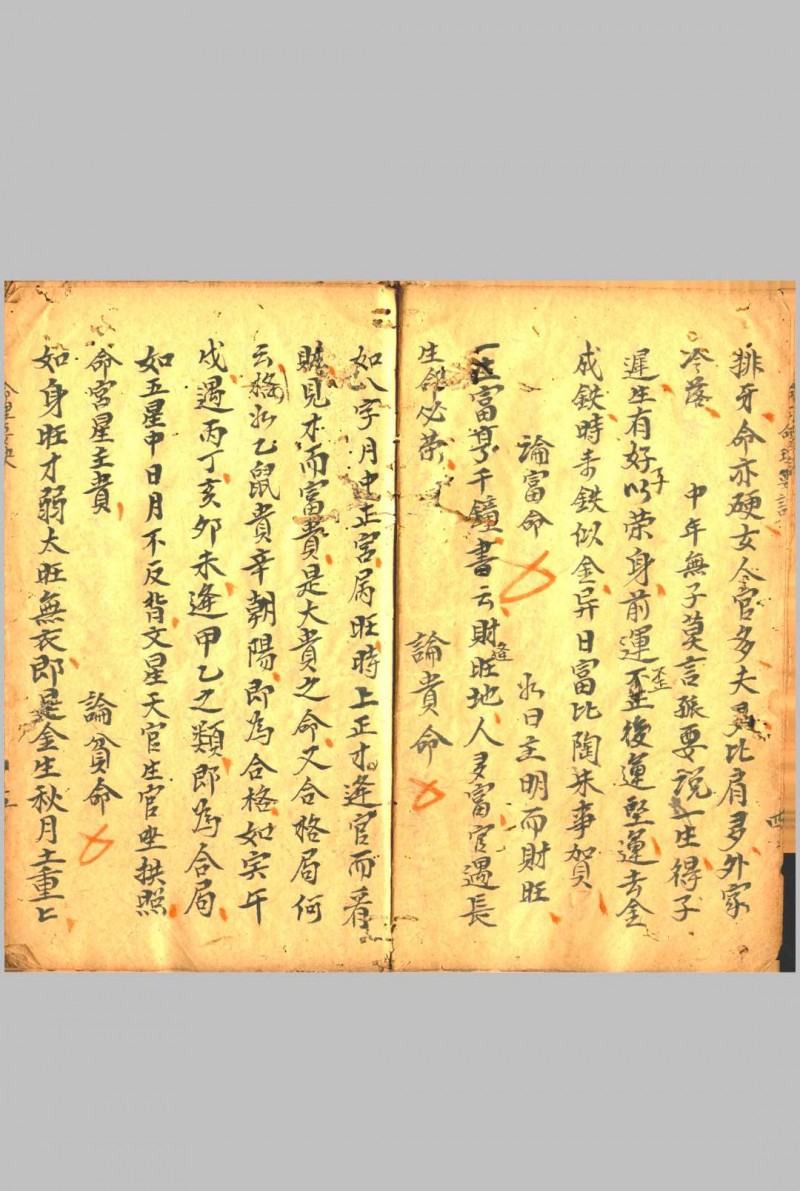 排牙命亦硬女人官多夫多比肩多外家
冷落 中年無子莫言孤要説一生得子
遲生有好子以荣身前運不歪後運堅運去金
成鉄時来鉄似金异日富比陶朱事賀
論富命 水日主明而財旺
一造富享千鐘書云財逢旺地人多富官遇長
生命必荣 論貴命
如八字月中正官属旺時上正才逢官而看
財見才而富貴是大貴之命又合格局何
云格 如乙鼠貴辛朝陽即為合格如寅午
戌遇丙丁亥卯未逢甲乙之類即為合局
如五星中日月不反背文星天官生官坐拱照
命宮星主貴 論貧命
如身旺才弱太旺無衣即是金生秋月土重上
四